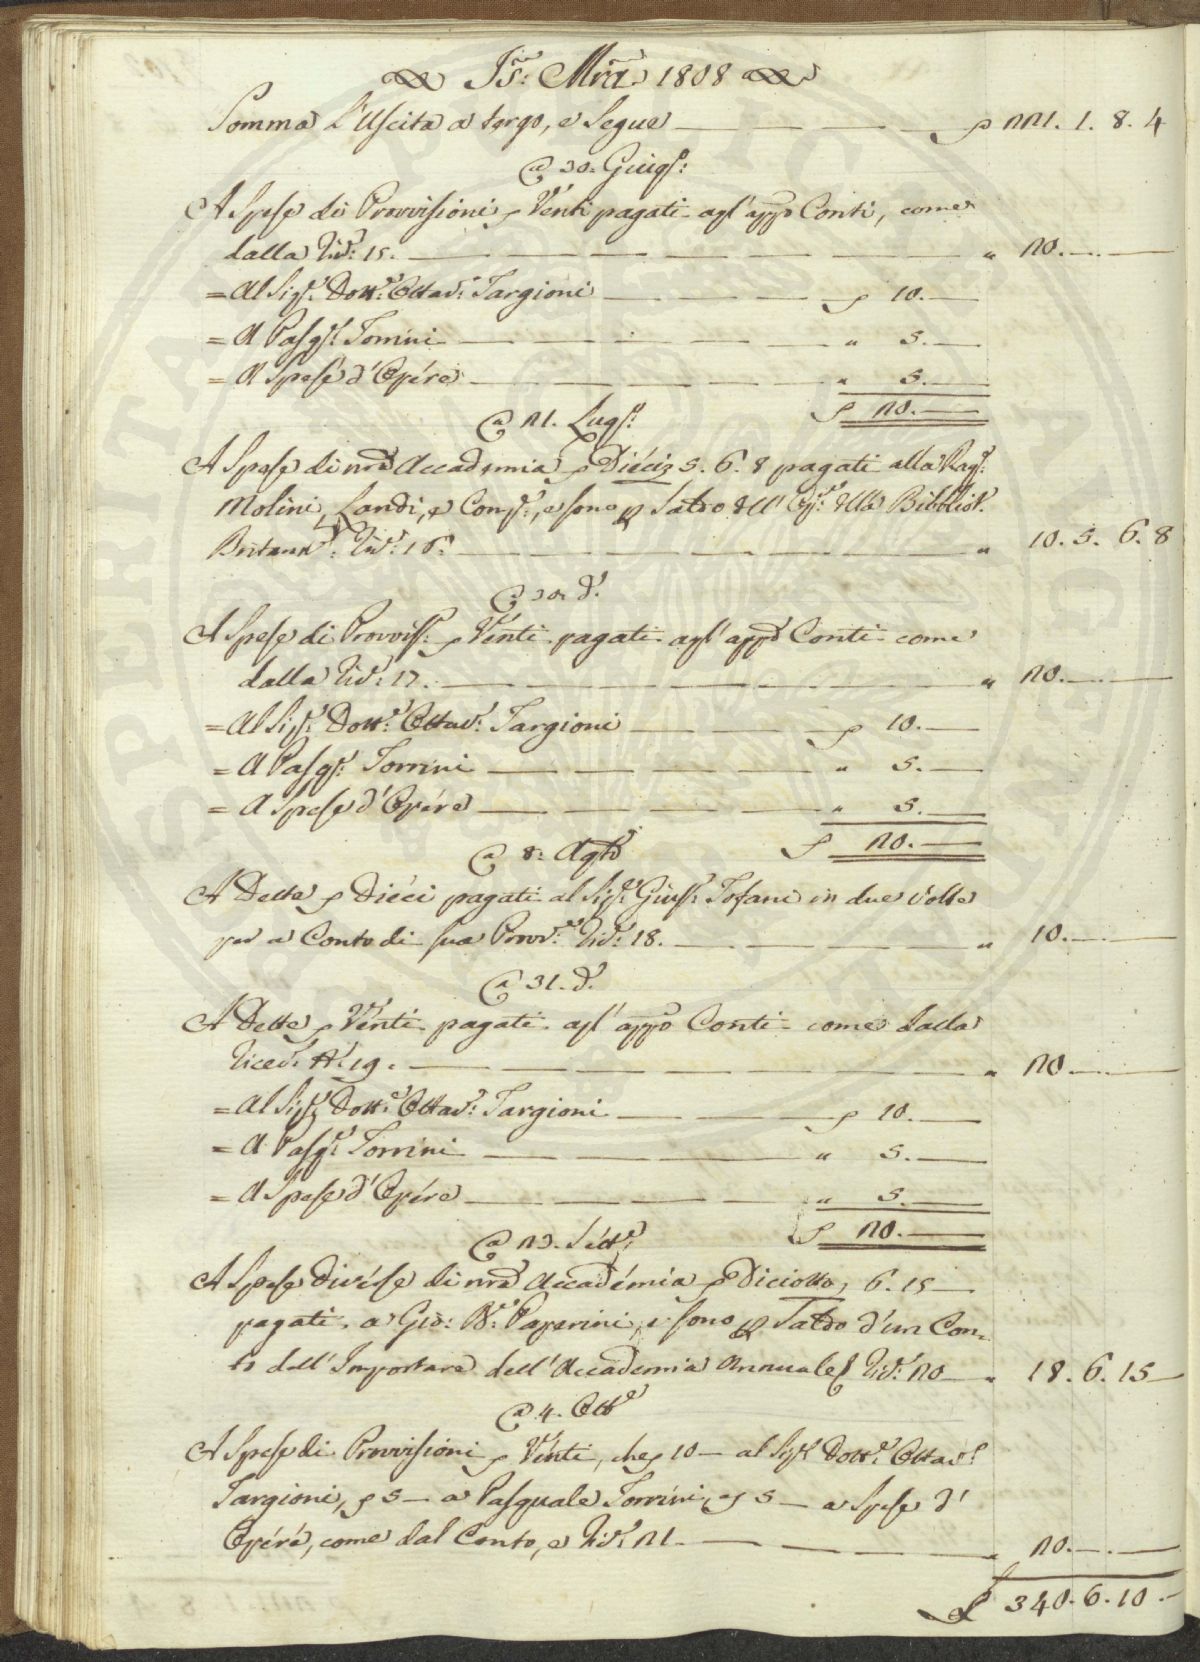 Js: Mra 1808
Somma l'Uscita a tergo, e Segue 221. 1. 8. 4
a 30. Giugo:
A Spese di Provvisioni p Venti pagati agl'appo Conti, come
dalla Rica: 15. " 20.
= Al Sigr: Dottr: Ottavo: Targioni p 10.
= A Pasqe: Torrini " 5.
= A Spese d'Opere " 5.
p 20.
a 21. Lugo:
A Spese di nra Accademia p Dieciz 5. 6. 8 pagati alla Rage:
Molini, Landi, e Compi, e sono p Saldo dell' della Bibbliot.
Britanna: Rica: 16. " 10. 5. 6. 8
a 30. do
A Spese di Provviss: p Venti pagati agl'appo Conti come
dalla Rica: 17. " 20.
= Al Sigr: Dottr: Ottavo: Targioni p 10.
= A Pasqe: Torrini " 5.
= A Spese d'Opere " 5.
p 20.
a 8. Agto
A Dette p Dieci pagati al Sigr: Giuse: Tofani in due volte
per a Conto di sua Provve: Rica: 18. " 10.
a 31. do
A Dette p Venti pagati agl'appo Conti come dalla
Ricea: No: 19. " 20.
= Al Sigr: Dottr: Ottavo: Targioni p 10.
= A Pasqe: Torrini " 5.
= A Spese d'Opere " 5.
p 20.
a 23. Sette:
A Spese Diverse di nra Accademia p Diciotto, 6. 15
pagati a Gio: Ba: Paperini, e sono p Saldo d'un Con=
to dell'Importare dell'Accademia Annuale Rica: 20 " 18. 6. 15
a 4. Otte
A Spese di Provvisioni p Venti, che p 10 al Sigr: Dottr: Ottavo:
Targioni, p 5 a Pasquale Torrini, e p 5 a Spese d'
Opere, come dal Conto, e Rica: 21. " 20.
340. 6. 10